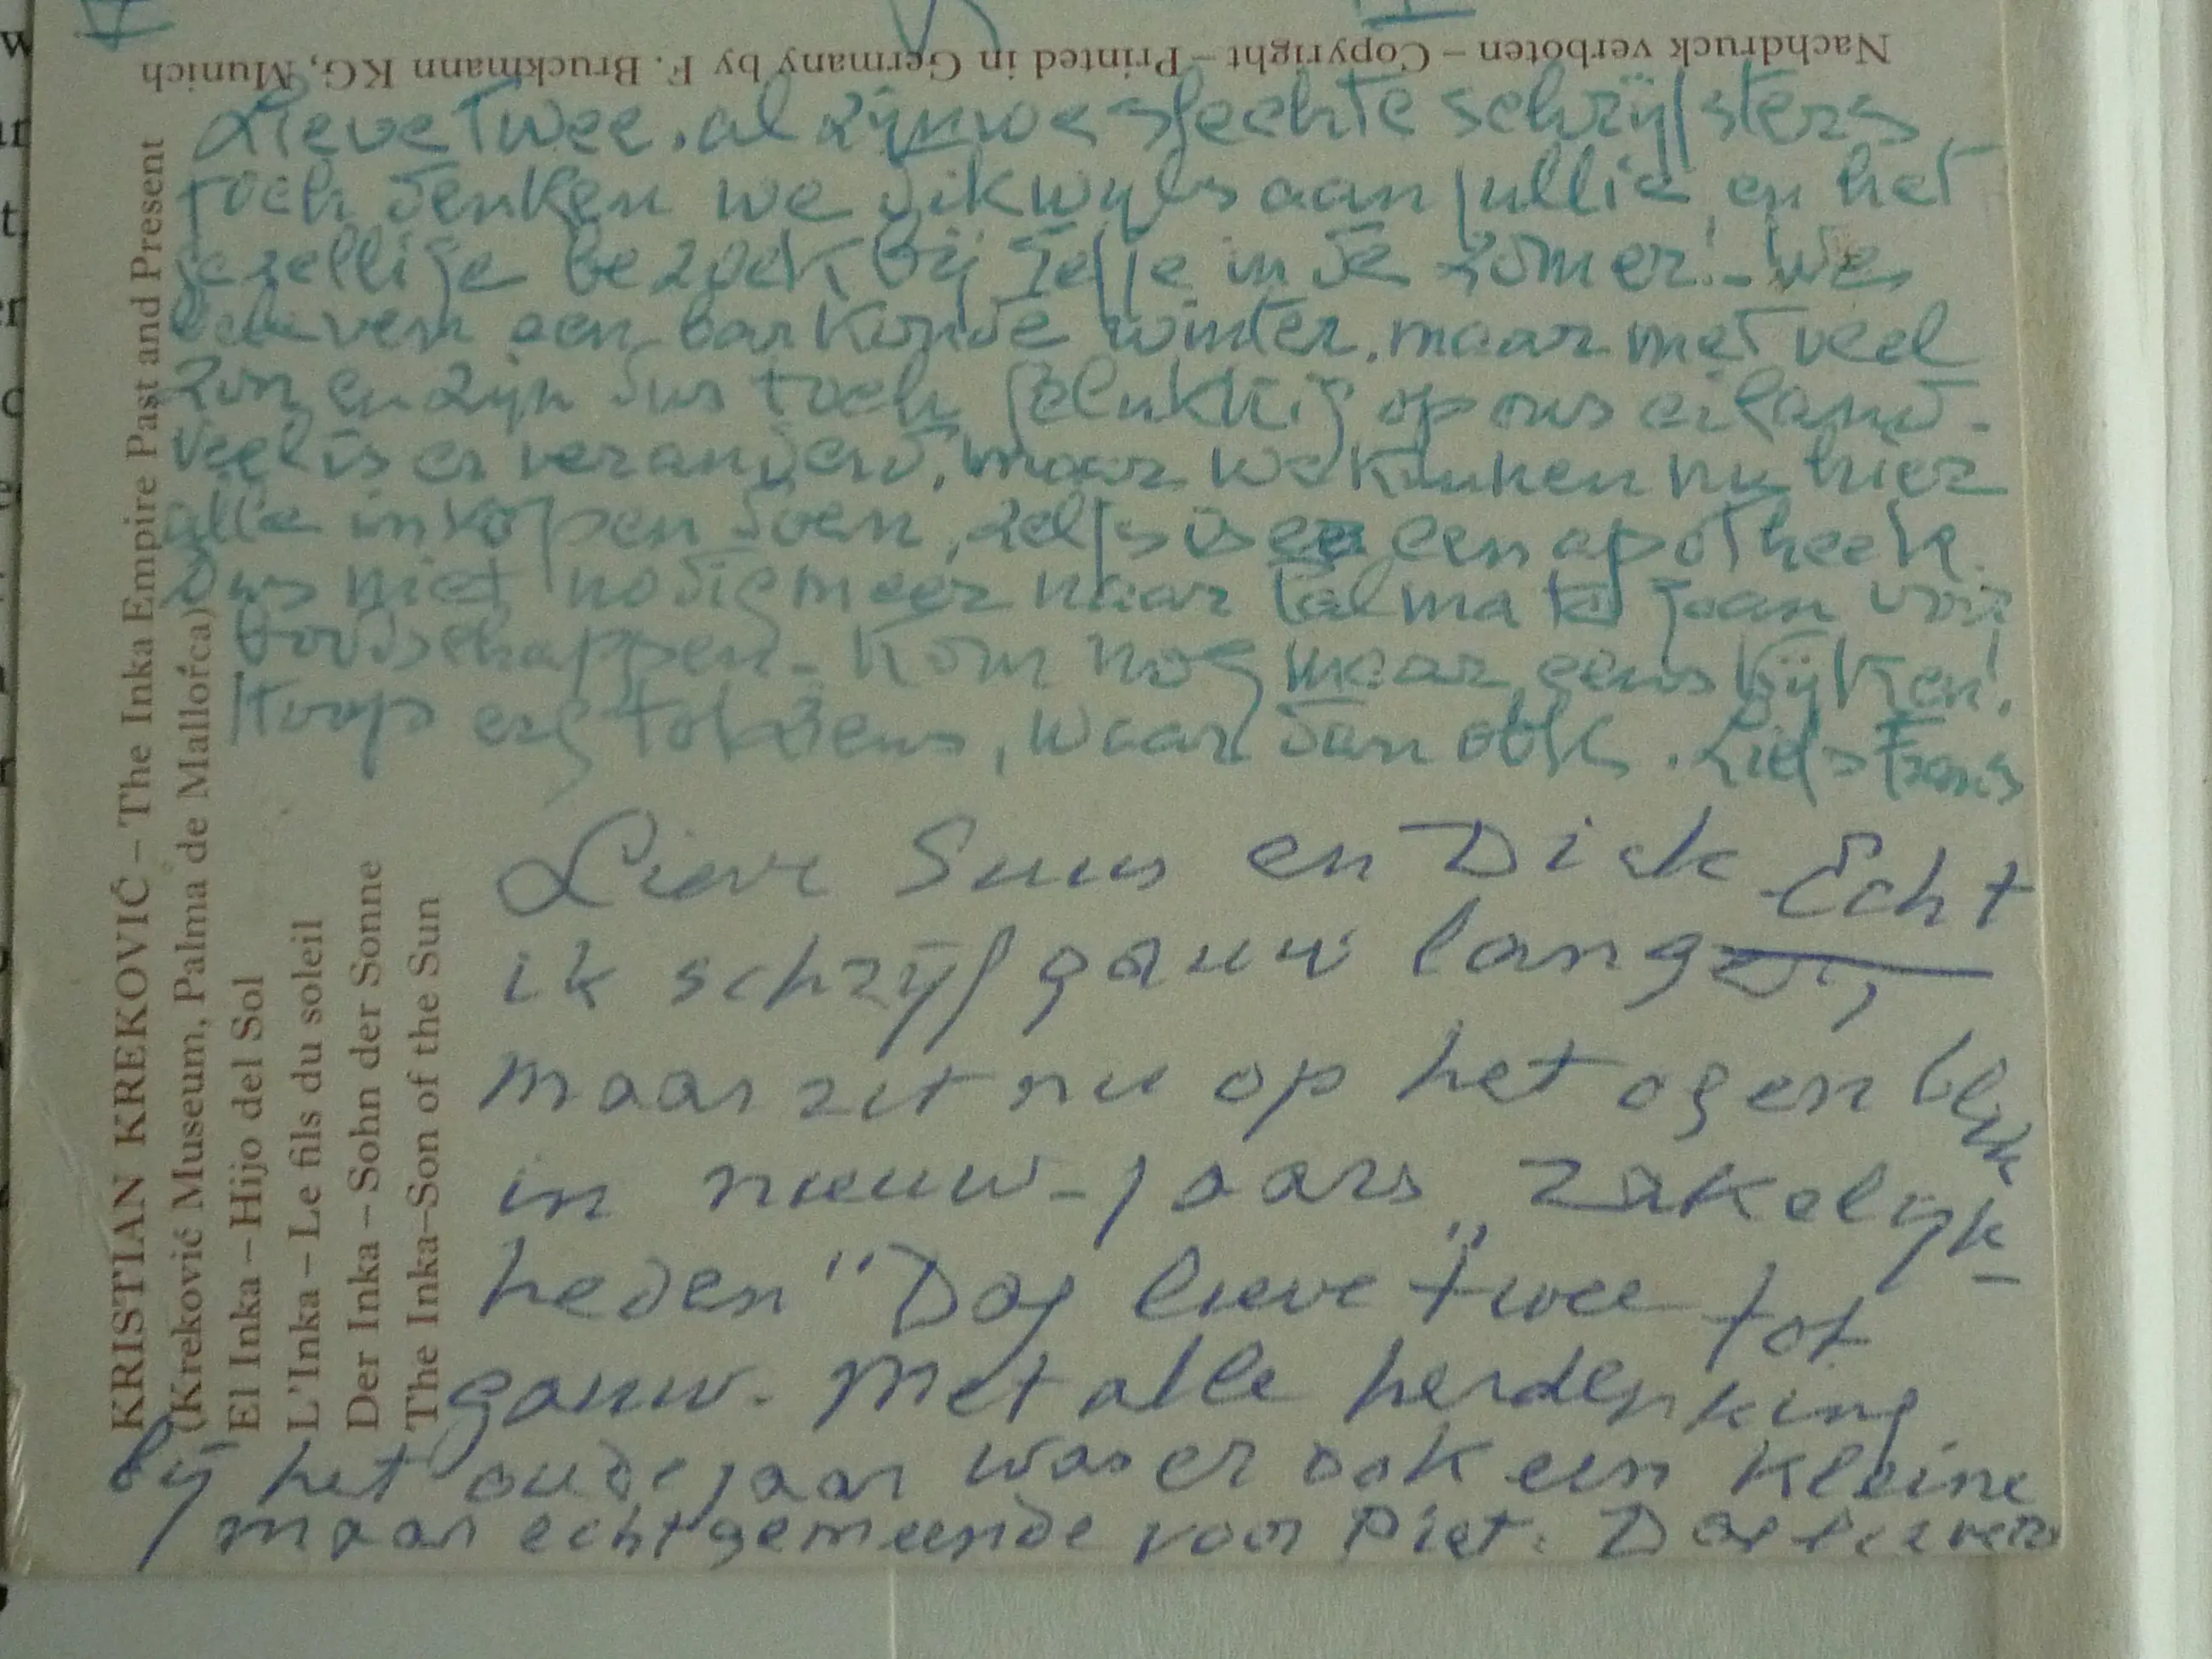 Nachdruck verboten – Copyright – Printed in Germany by F. Bruckmann KG, Munich
Lieve Twee, al zijn we slechte schrijfsters
toch denken we dikwijls aan jullie, en het
gezellige bezoek bij Jelle in de zomer! – We
beleven een bar koude winter, maar met veel
zon, en zijn dus toch gelukkig op ons eiland.
Veel is er veranderd, maar we kunnen nu hier
alle inkopen doen, zelfs is er een apotheek.
Dus niet nodig meer naar Palma te gaan voor
boodschappen. Kom nog maar eens kijken!
Hoop erg tot ziens, waar dan ook. Liefs Frans
Lieve Suus en Dick Echt
ik schrijf gauw langer,
maar zit nu op het ogenblik
in nieuw-jaars „zakelijk-
heden" Dag lieve twee tot
gauw. Met alle herdenking
bij het oudejaar was er ook een kleine
maar echt gemeende voor Piet. Dag
KRISTIAN KREKOVIĆ – The Inka Empire Past and Present
(Kreković Museum, Palma de Mallorca)
El Inka – Hijo del Sol
L'Inka – Le fils du soleil
Der Inka – Sohn der Sonne
The Inka–Son of the Sun